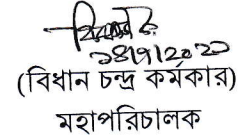 ১৪/৭/২০২০
(বিধান চন্দ্র কর্মকার)
মহাপরিচালক